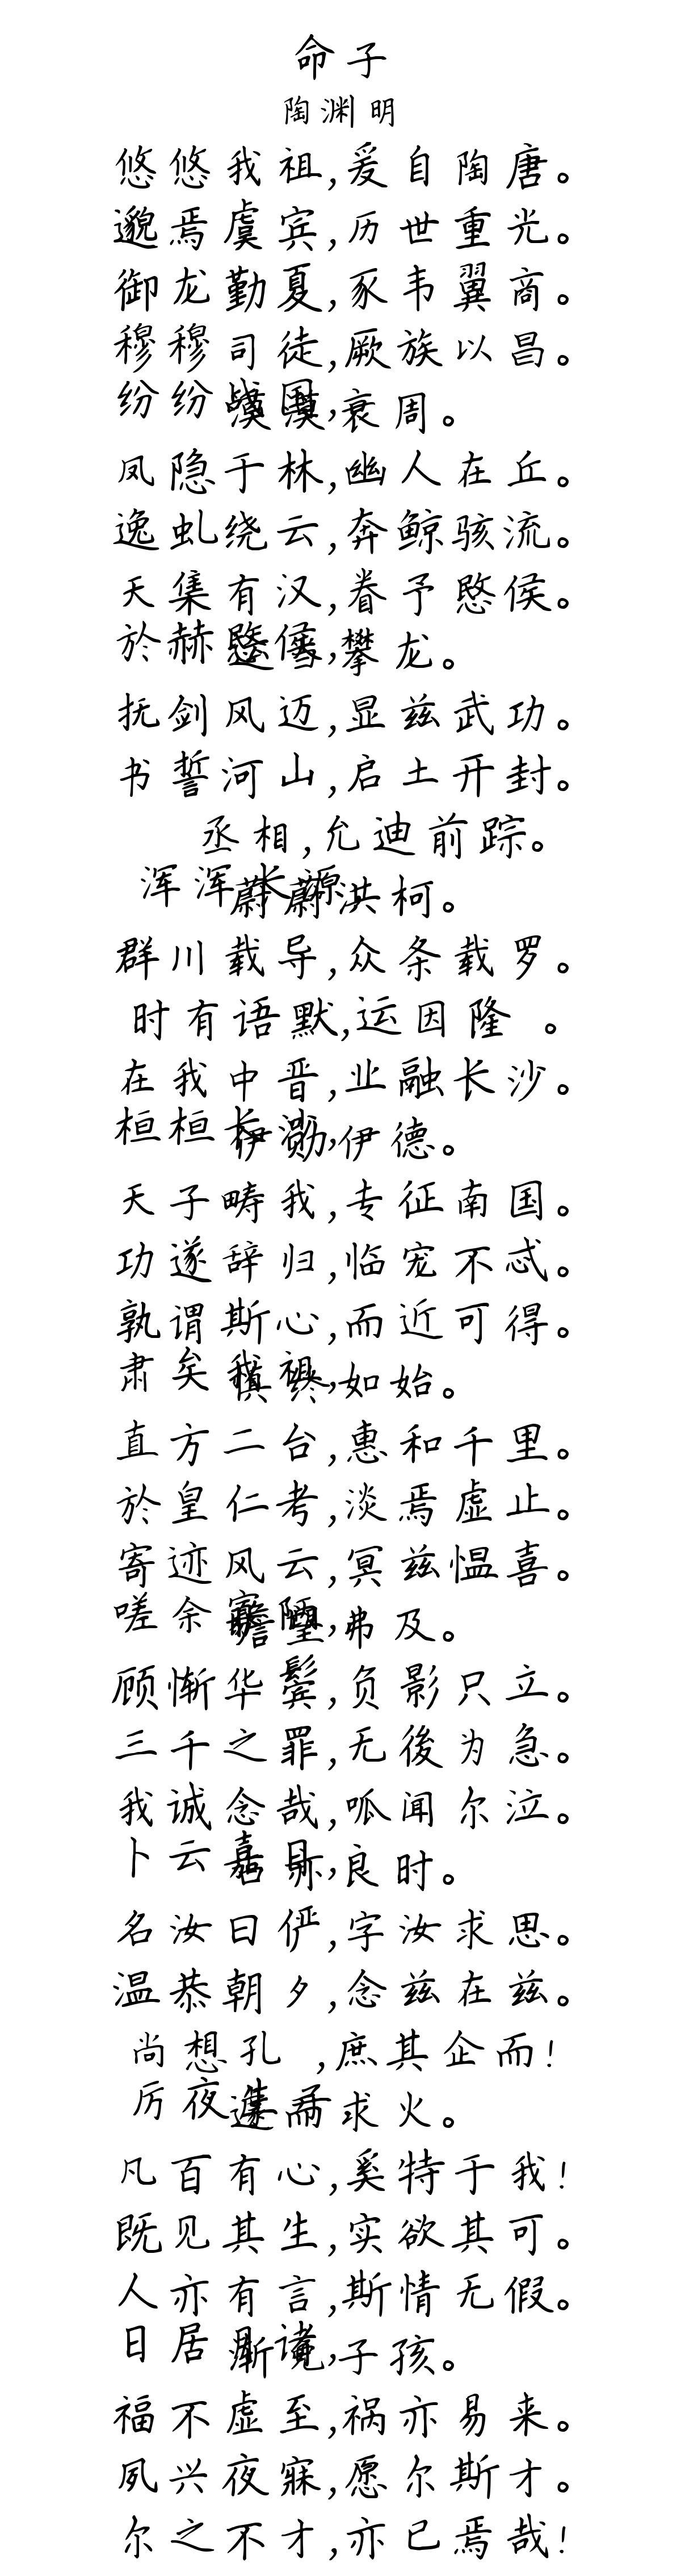 命子
陶渊明
悠悠我祖,爰自陶唐。
邈焉虞宾,历世重光。
御龙勤夏,豕韦翼商。
穆穆司徒,厥族以昌。
纷纷战国,漠漠衰周。
凤隐于林,幽人在丘。
逸虬绕云,奔鲸骇流。
天集有汉,眷予愍侯。
於赫愍侯,运当攀龙。
抚剑风迈,显兹武功。
书誓河山,启土开封。
丞相,允迪前踪。
浑浑长源,蔚蔚洪柯。
群川载导,众条载罗。
时有语默,运因隆 。
在我中晋,业融长沙。
桓桓长沙,伊勋伊德。
天子畴我,专征南国。
功遂辞归,临宠不忒。
孰谓斯心,而近可得。
肃矣我祖,慎终如始。
直方二台,惠和千里。
於皇仁考,淡焉虚止。
寄迹风云,冥兹愠喜。
嗟余寡陋,瞻望弗及。
顾惭华鬓,负影只立。
三千之罪,无後为急。
我诚念哉,呱闻尔泣。
卜云嘉日,占亦良时。
名汝曰俨,字汝求思。
温恭朝夕,念兹在兹。
尚想孔 ,庶其企而!
厉夜生子,遽而求火。
凡百有心,奚特于我!
既见其生,实欲其可。
人亦有言,斯情无假。
日居月诸,渐免子孩。
福不虚至,祸亦易来。
夙兴夜寐,愿尔斯才。
尔之不才,亦已焉哉!